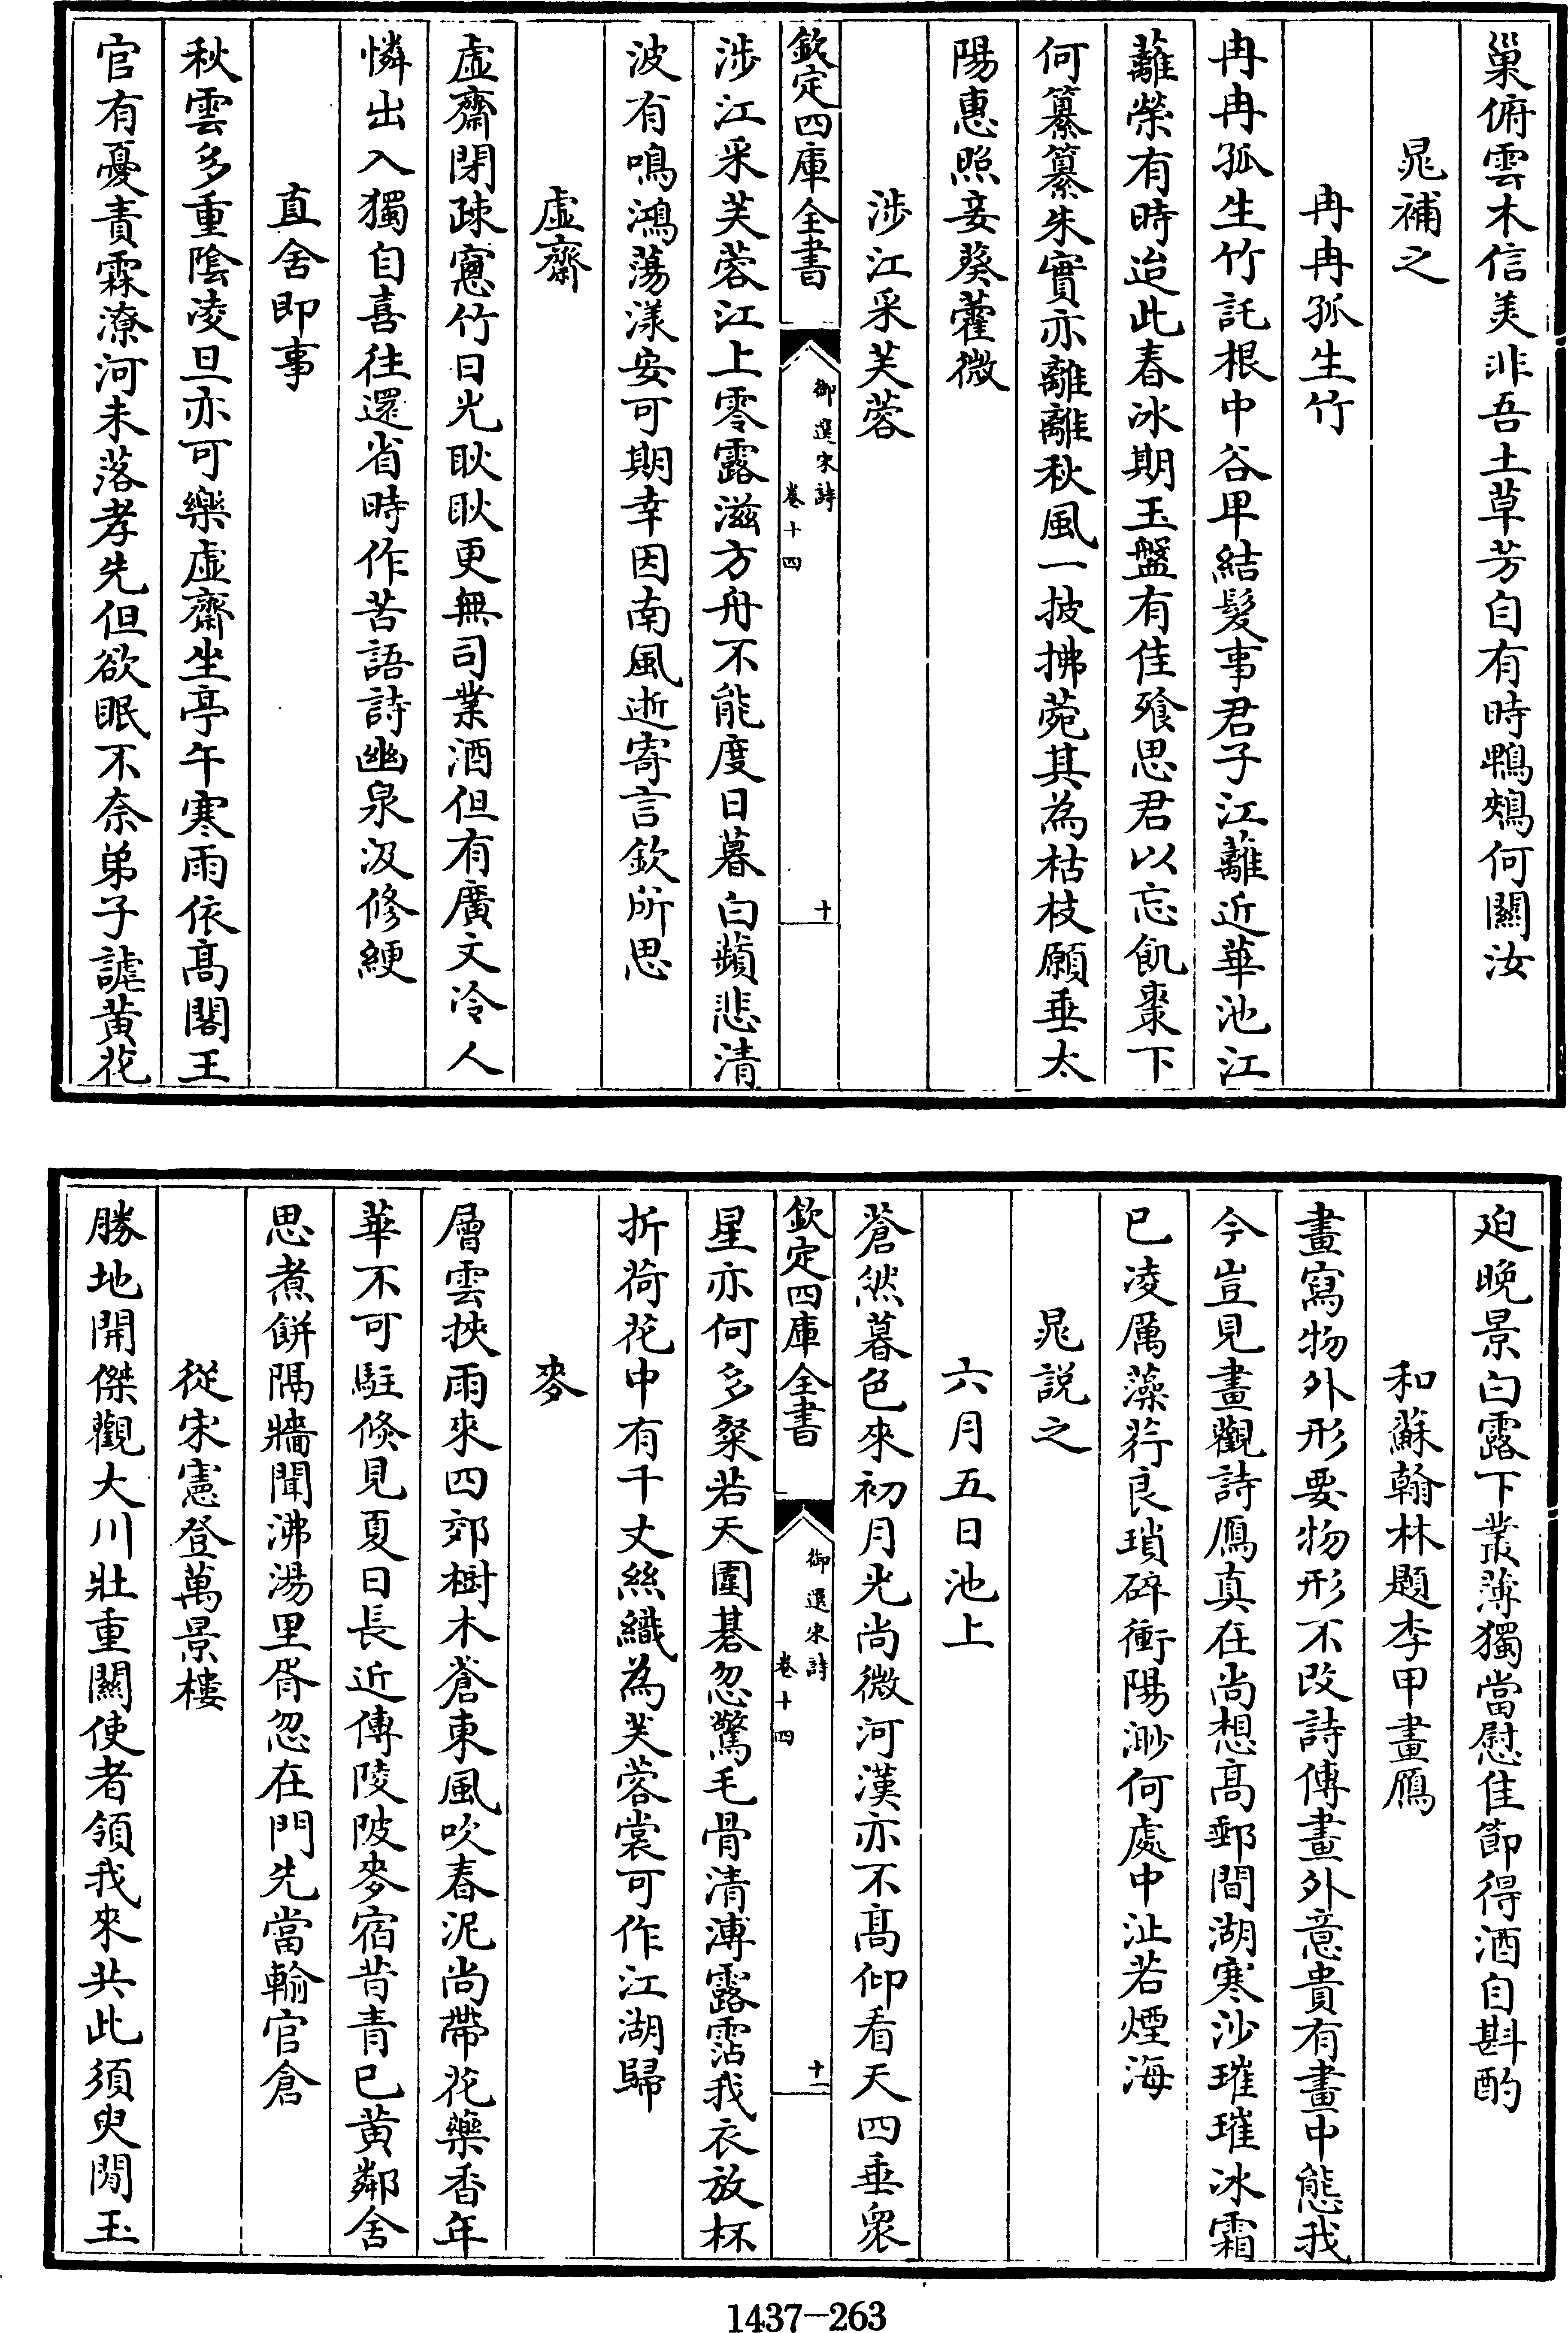 巢俯雲木信美非吾土草芳自有時鴨鴂何關汝
晁補之
冉冉孤生竹
冉冉孤生竹託根中谷卑結髮事君子江蘺近華池江
蘺榮有時迨此春冰期玉盤有佳飱思君以忘飢棗下
何纂纂朱實亦離離秋風一披拂菀其為枯枝願垂太
陽惠照妾葵藿微
涉江采芙蓉
欽定四庫全書
御選宋詩
卷十四
十
涉江采芙蓉江上零露滋方舟不能度日暮白蘋悲清
波有鳴鴻蕩漾安可期幸因南風逝寄言欽所思
虛齋
虛齋閉疎窻竹日光耿耿更無司業酒但有廣文冷人
憐出入獨自喜往還省時作苦語詩幽泉汲修綆
直舍即事
秋雲多重陰凌旦亦可樂虛齋坐亭午寒雨依高閣王
官有憂責霖潦河未落孝先但欲眠不奈弟子謔黃花
迫晚景白露下叢薄獨當慰佳節得酒自斟酌
和蘇翰林題李甲畫鴈
畫寫物外形要物形不改詩傳畫外意貴有畫中態我
今豈見畫觀詩鴈真在尚想高郵間湖寒沙璀璀冰霜
已凌厲藻荇良瑣碎衝陽渺何處中沚若煙海
晁說之
六月五日池上
蒼然暮色來初月光尚微河漢亦不高仰看天四垂衆
欽定四庫全書
御選宋詩
卷十四
十一
星亦何多粲若天圍碁忽驚毛骨清漙露霑我衣放杯
折荷花中有千丈絲織為芙蓉裳可作江湖歸
麥
層雲挾雨來四郊樹木蒼東風吹春泥尚帶花藥香年
華不可駐倏見夏日長近傅陵陂麥宿昔青已黃鄰舍
思煮餅隔牆聞沸湯里胥忽在門先當輸官倉
從宋憲登萬景樓
勝地開傑觀大川壯重關使者領我來共此須臾閒玉
1437-263